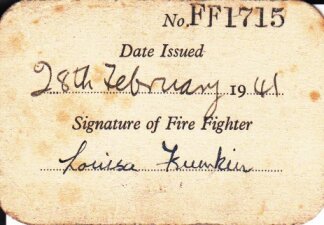 No. FF1715
Date Issued
28th February 1941
Signature of Fire Fighter
Louisa